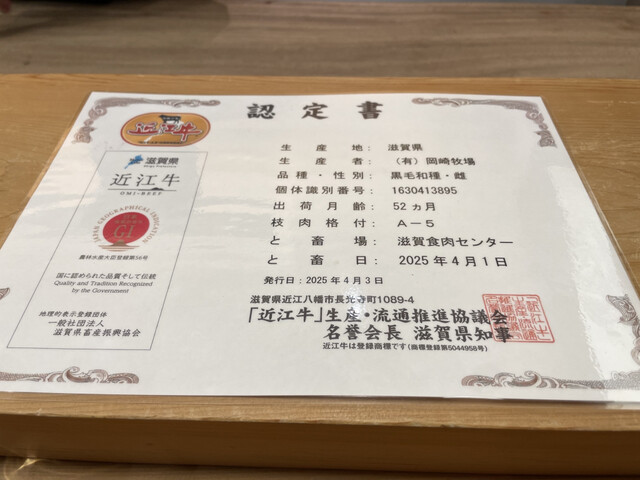 認定書
近江牛
滋賀県
Shiga Prefecture
近江牛
OMI-BEEF
JAPAN GEOGRAPHICAL INDICATION
GI
農林水産大臣登録第56号
国に認められた品質そして伝統
Quality and Tradition Recognized
by the Government
地理的表示登録団体
一般社団法人
滋賀県畜産振興協会
生産地: 滋賀県
生産者: (有)岡崎牧場
品種・性別: 黒毛和種・雌
個体識別番号: 1630413895
出荷月齢: 52ヵ月
枝肉格付: A-5
と畜場: 滋賀食肉センター
と畜日: 2025年4月1日
発行日:2025年4月3日
滋賀県近江八幡市長光寺町1089-4
「近江牛」生産・流通推進協議会
名誉会長 滋賀県知事
近江牛は登録商標です(商標登録第5044958号)